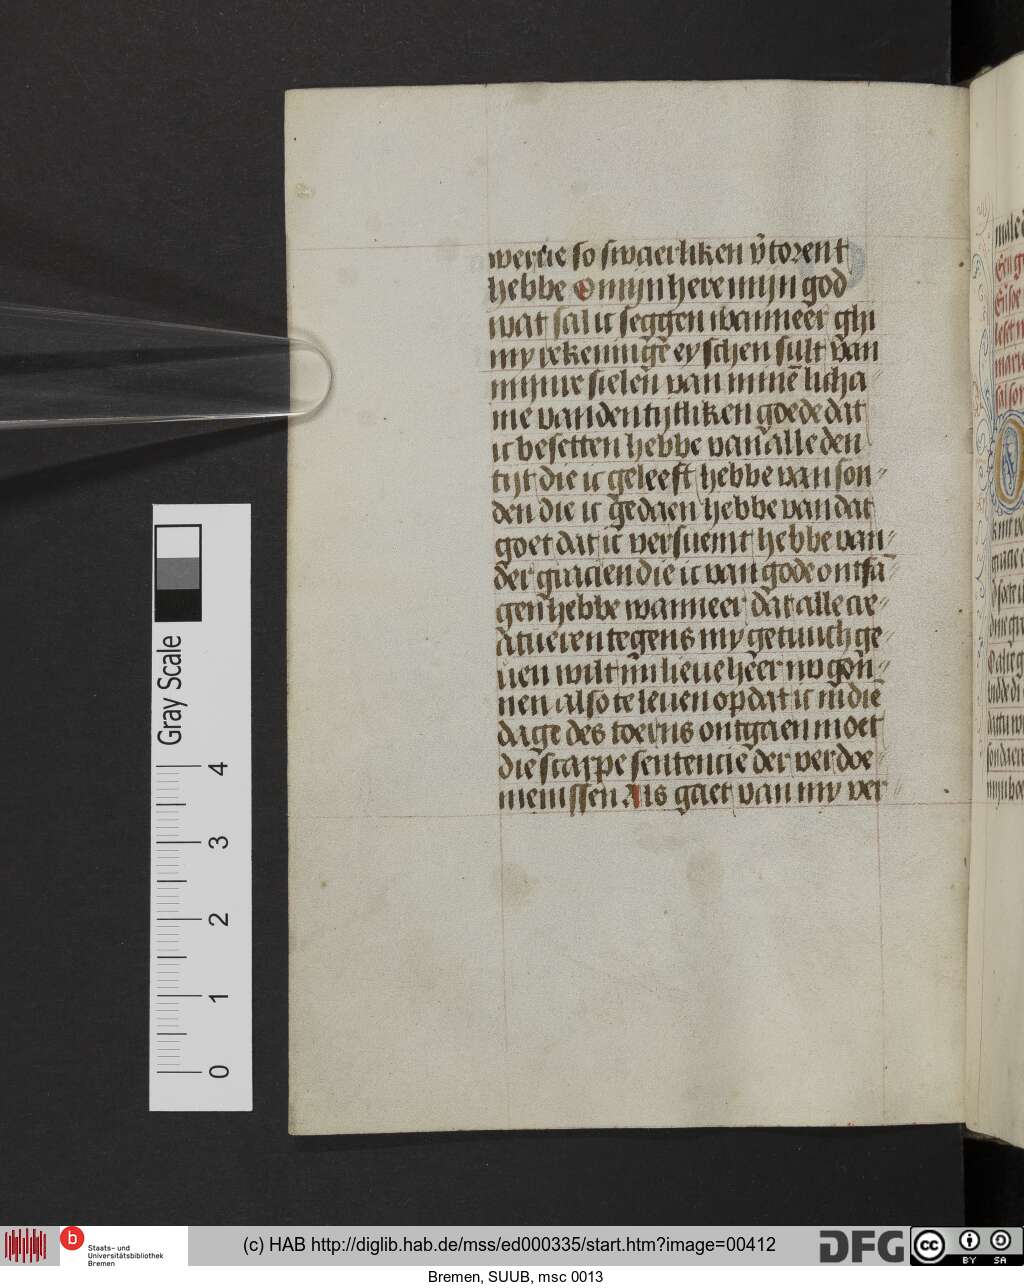 wercke so swaerliken v̄torent
hebbe O mijn here mijn god
wat sal ic seggen wanneer ghi
my rekeninge eyschen sult van
mijnre sielen van minē licha
me van den tijtliken goede dat
ic besetten hebbe van alle den
tijt die ic geleeft hebbe van son
den die ic gedaen hebbe van dat
goet dat ic versuemt hebbe van
der gracien die ic van gode ontfā
gen hebbe wanneer dat alle cre
atueren tegens my getuuch ge
uen wilt mi lieue heer nv gon
nen also te leuen op dat ic in die
dage des toerns ontgaen moet
die scarpe sentencie der verdoe
menissen Als gaet van my ver
Gray Scale
4
3
2
1
0
b
Staats- und
Universitätsbibliothek
Bremen
(c) HAB http://diglib.hab.de/mss/ed000335/start.htm?image=00412
DFG
cc
BY SA
Bremen, SUUB, msc 0013